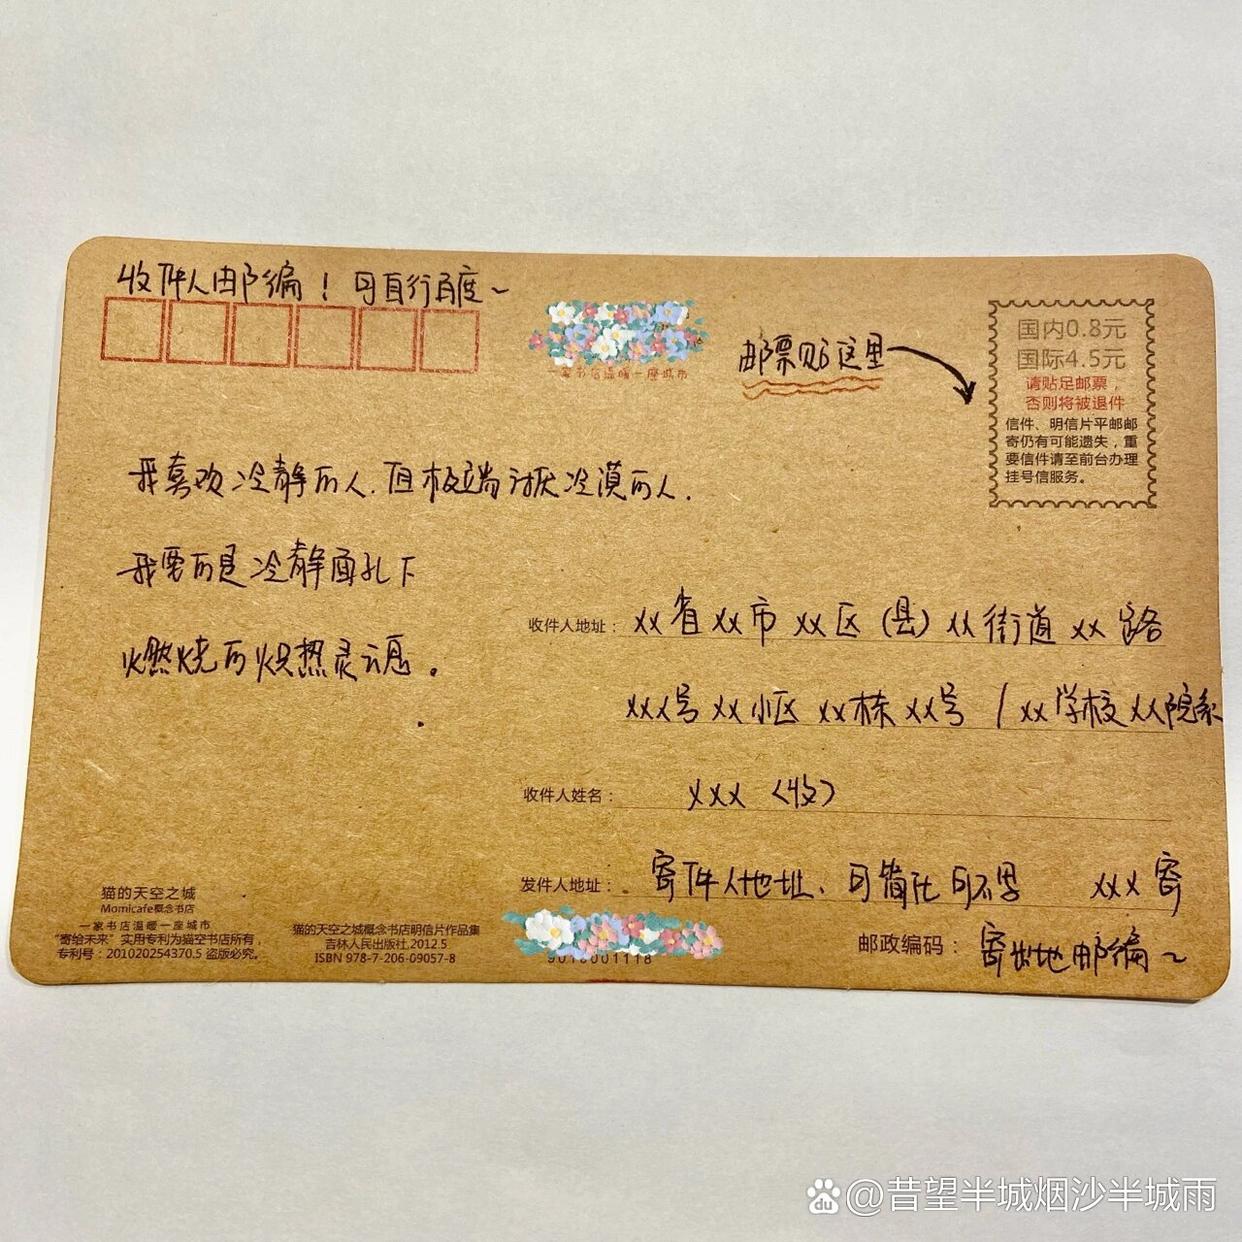 收件人邮编！可自行百度~
一家书店温暖一座城市
邮票贴这里
国内0.8元
国际4.5元
请贴足邮票，
否则将被退件
信件、明信片平邮邮
寄仍有可能遗失，重
要信件请至前台办理
挂号信服务。
我喜欢冷静的人.但极端讨厌冷漠的人.
我要的是冷静面孔下
燃烧的炽热灵魂。
收件人地址：xx省xx市xx区(县)xx街道xx路
xxx号xx小区xx栋xx号/xx学校xx院系
收件人姓名：xxx(收)
发件人地址：寄件人地址、可简化可不写 xxx寄
邮政编码：寄出地邮编~
猫的天空之城
Momicafe概念书店
一家书店温暖一座城市
"寄给未来"实用专利为猫空书店所有，
专利号：201020254370.5 盗版必究。
猫的天空之城概念书店明信片作品集
吉林人民出版社,2012.5
ISBN 978-7-206-09057-8
9010001118
du @昔望半城烟沙半城雨